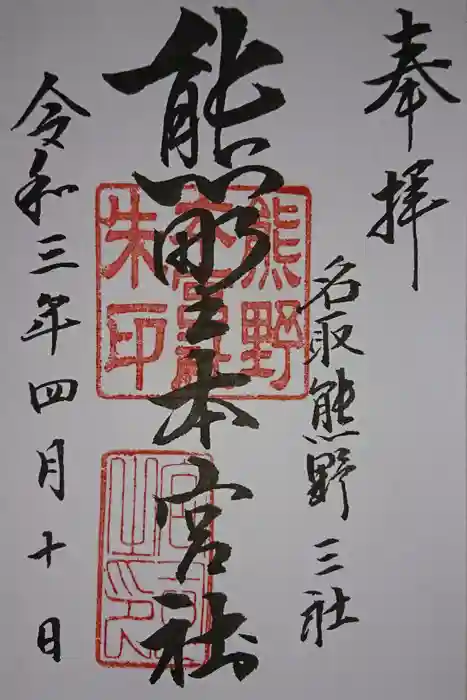 奉拝
名取熊野三社
熊野本宮社
熊野
本宮社
朱印
令和三年四月十日